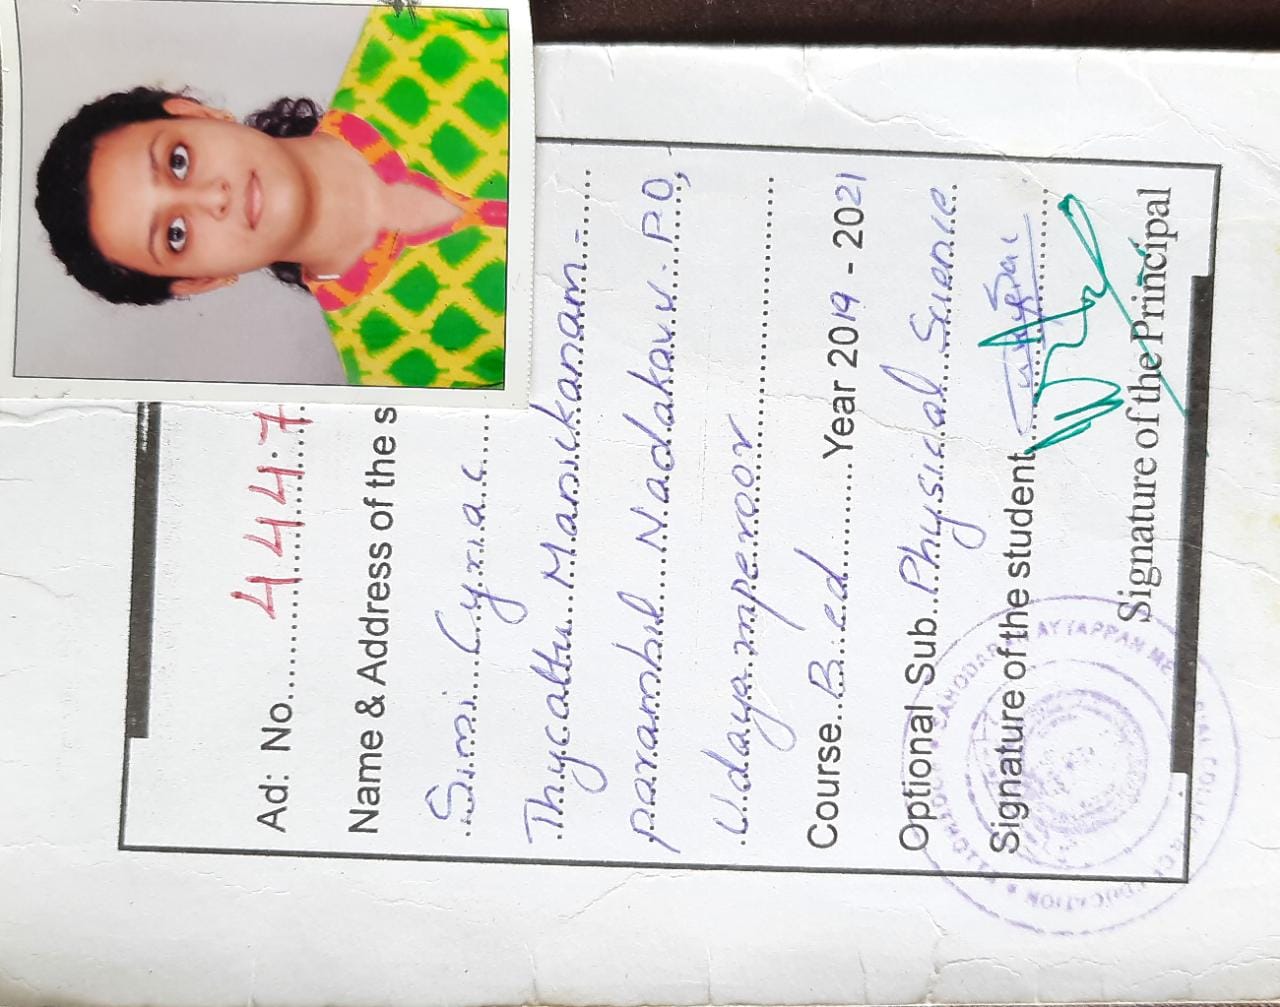 Ad: No. 4447
Name & Address of the s
Simi Cyriac
Thycattu Manikanam-
parambil Nadakavu. P.O,
Udayamperoor
Course B.ed Year 2019 - 2021
Optional Sub. Physical Science
Signature of the student
Signature of the Principal
SAHODARAN AYYAPPAN ME
EDUCATION